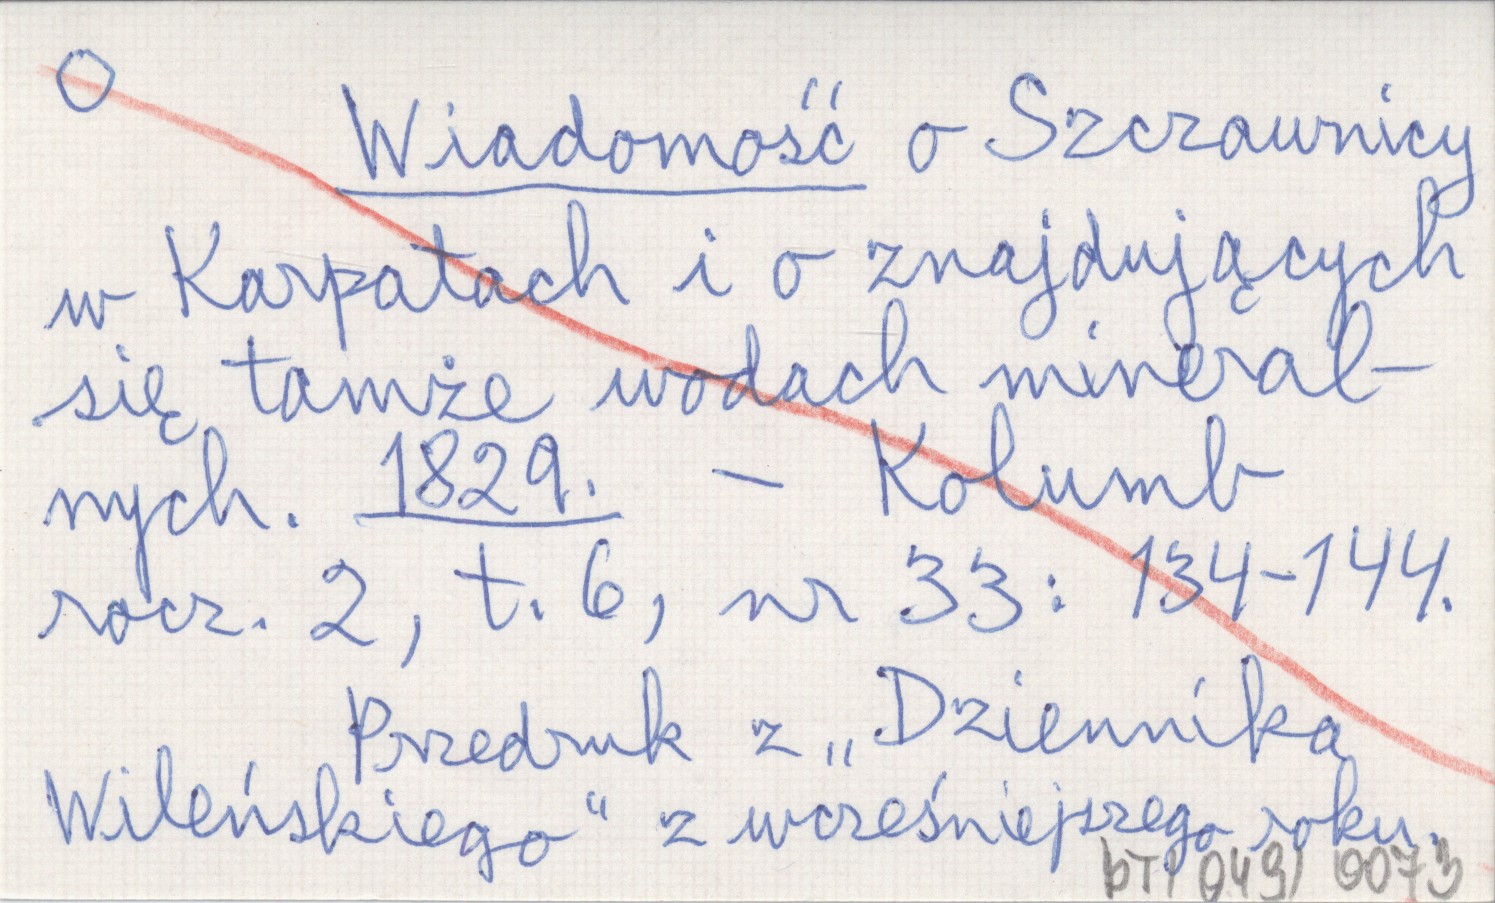 Wiadomość o Szczawnicy
w Karpatach i o znajdujących
się tamże wodach mineral-
nych. 1829. – Kolumb
rocz. 2, t. 6, nr 33: 134-144.
Przedruk z „Dziennika
Wileńskiego“ z wcześniejszego roku.
9073